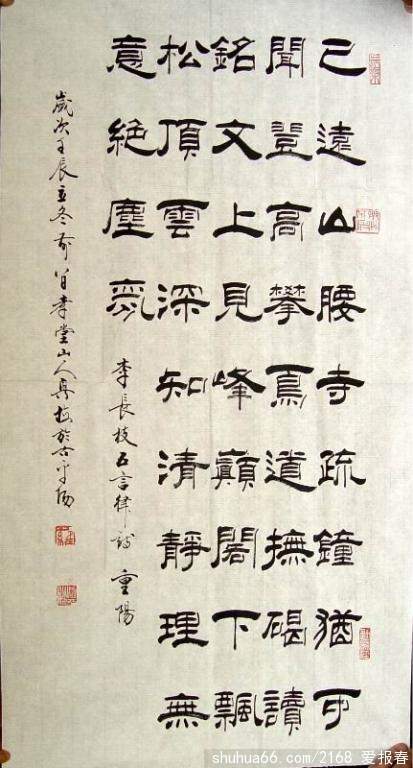 已遠山腰寺疏鐘猶可
聞登高攀鳥道撫碣讀
銘文上見峰巔閣下飄
松頂雲深知清靜理無
意絕塵氛
李長枝五言律詩 重陽
歲次壬辰立冬前日孝堂山人於古平陽
shuhua66.com/2168 爱报春